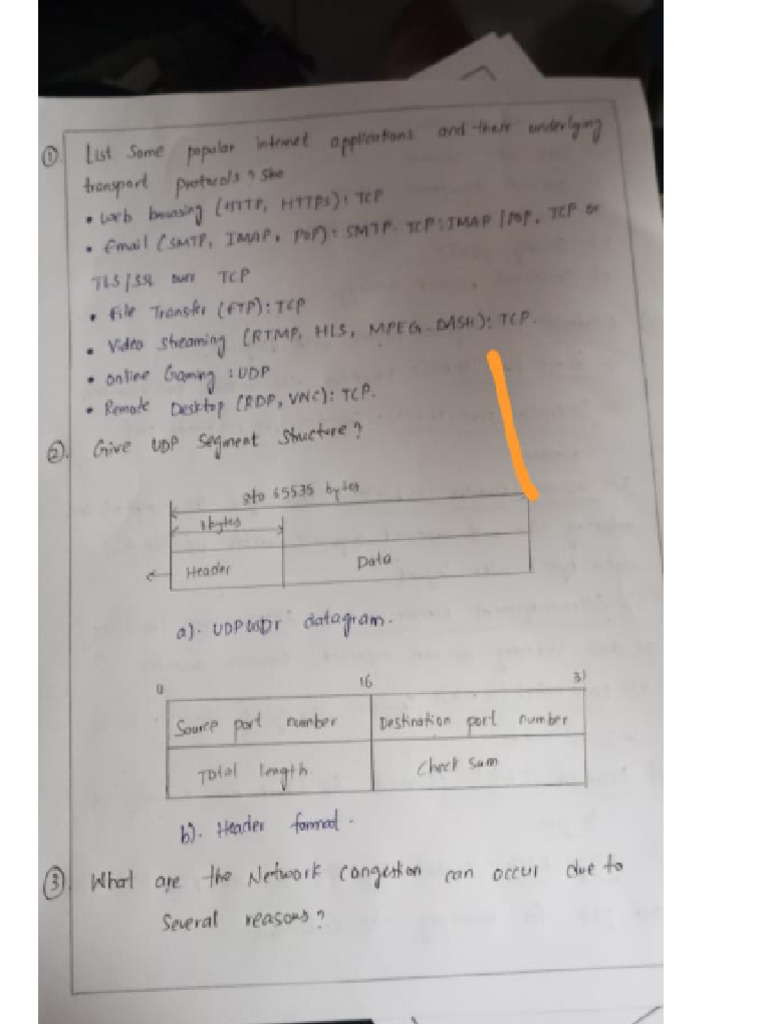 ① List Some popular internet applications and there underlying
transport protocols?
• Web browsing (HTTP, HTTPS): TCP
• Email (SMTP, IMAP, POP): SMTP- TCP: IMAP / POP, TCP or
TLS/SSL over TCP
• File Transfer (FTP): TCP
• Video Streaming (RTMP, HLS, MPEG-DASH): TCP.
• online Gaming: UDP
• Remote Desktop (RDP, VNC): TCP.
② Give UDP Segment Structure?
8to 65535 bytes
bytes
Header Data
a). UDP datagram.
0 16 31
Source port number Destination port number
Total length Check Sum
b). Header format.
③ What are the Network Congestion can occur due to
Several reasons?